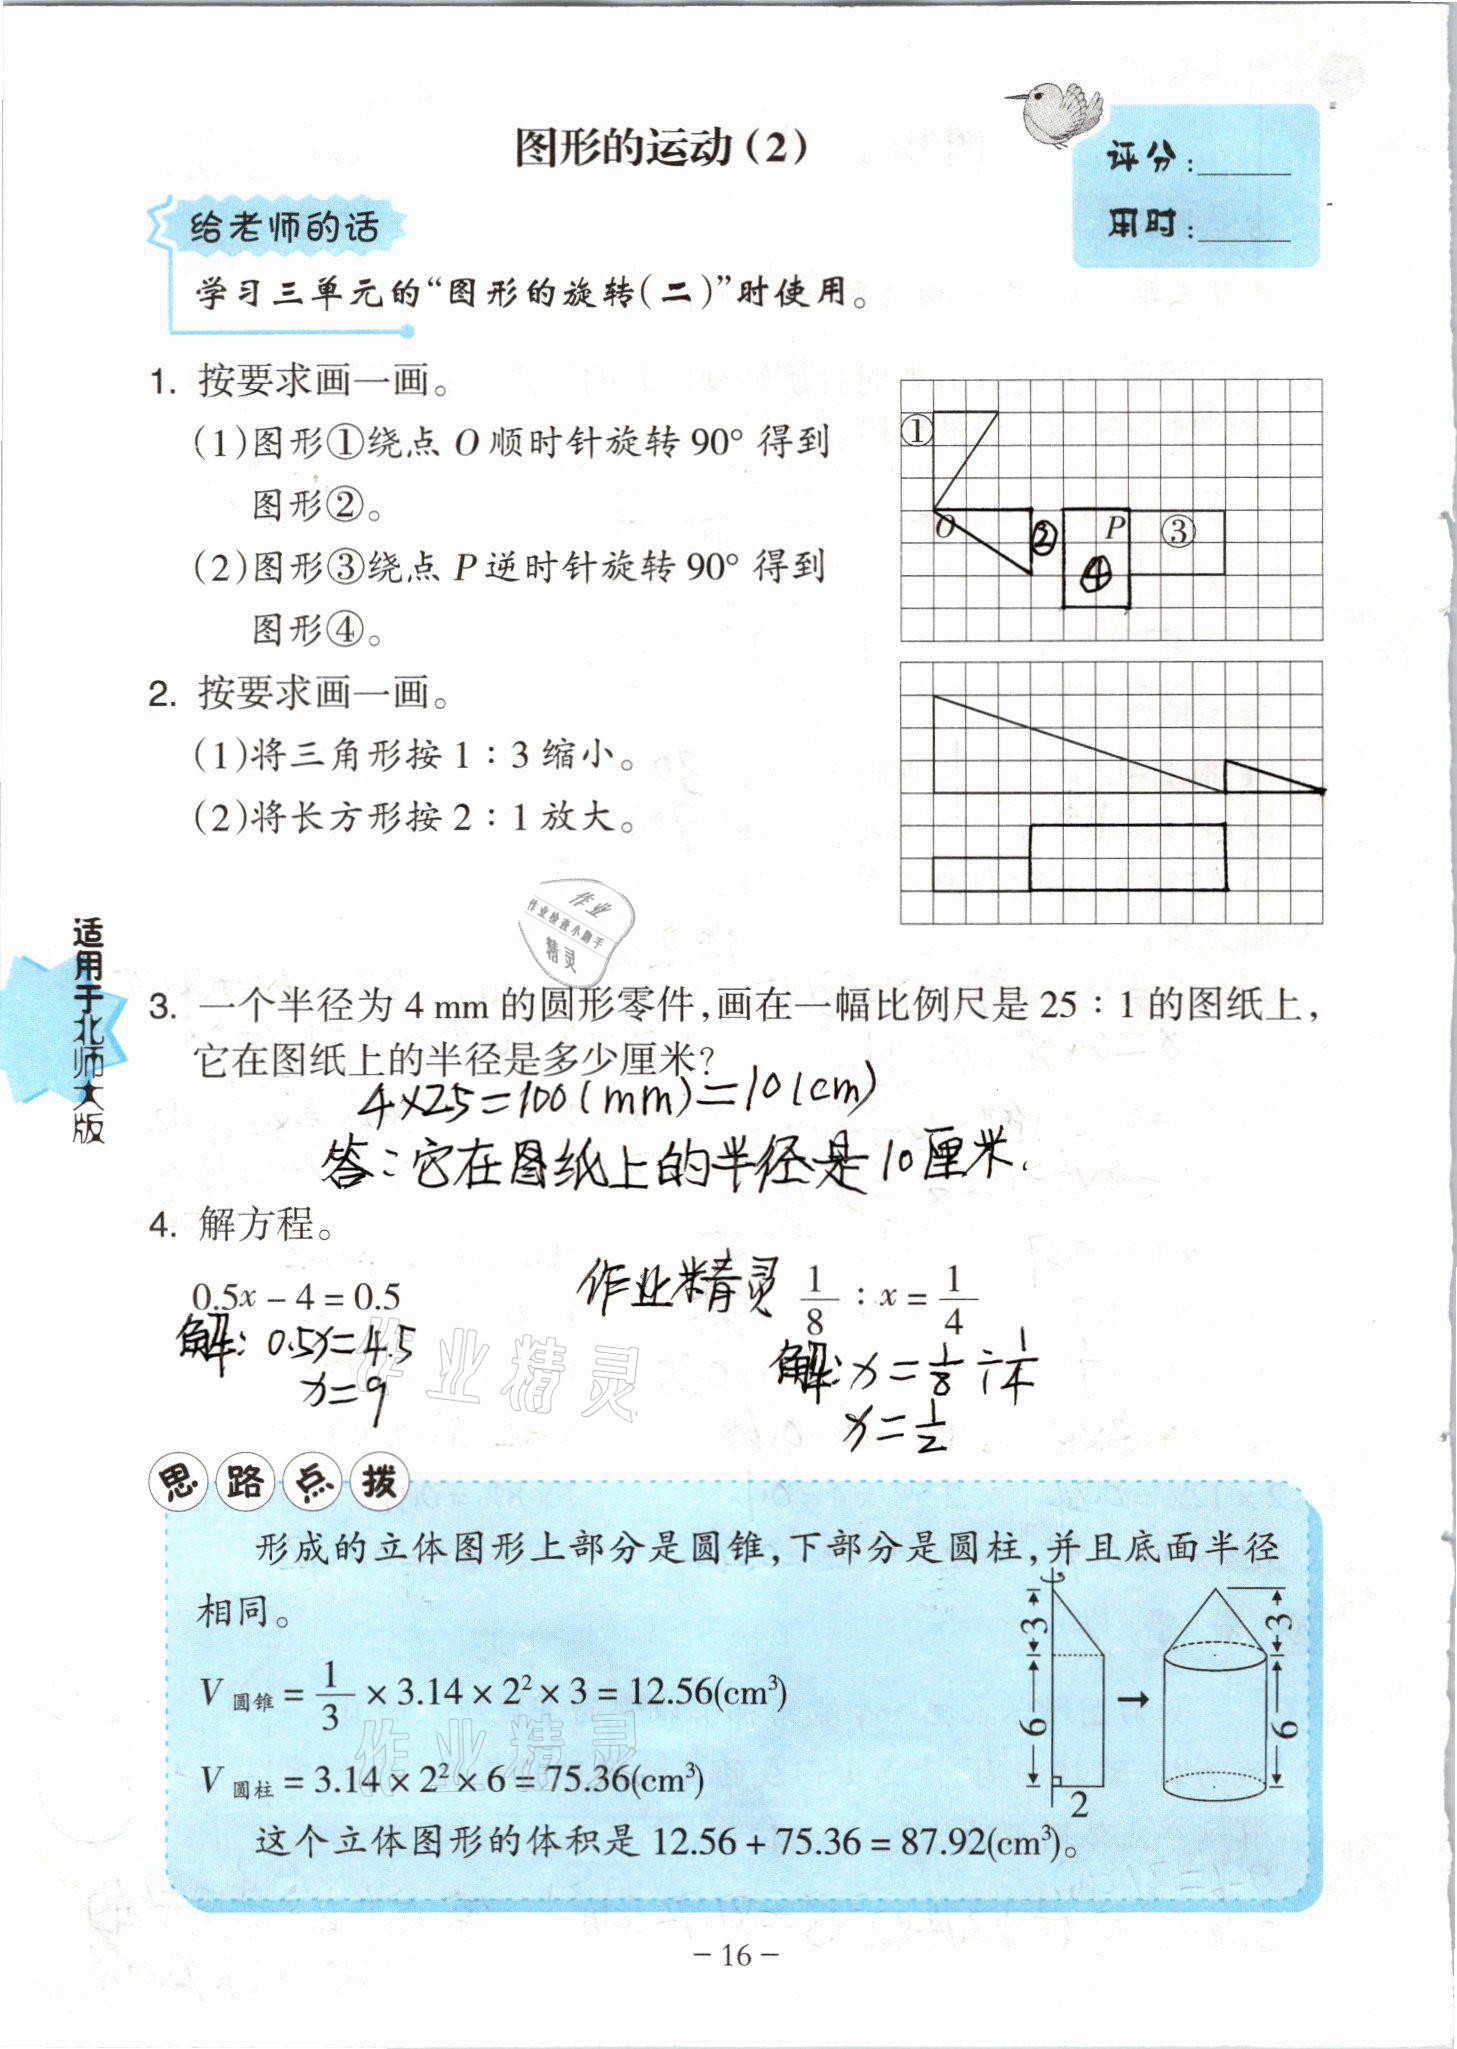 图形的运动(2)
评分:
用时:
给老师的话
学习三单元的“图形的旋转(二)”时使用。
1. 按要求画一画。
(1)图形①绕点 O 顺时针旋转 90° 得到
图形②。
(2)图形③绕点 P 逆时针旋转 90° 得到
图形④。
①
O
②
P
③
④
2. 按要求画一画。
(1)将三角形按 1∶3 缩小。
(2)将长方形按 2∶1 放大。
作业
作业检查小助手
精灵
适用于北师大版
3. 一个半径为 4 mm 的圆形零件,画在一幅比例尺是 25∶1 的图纸上,
它在图纸上的半径是多少厘米?
4×25=100(mm)=10(cm)
答:它在图纸上的半径是10厘米.
4. 解方程。
作业精灵
0.5x − 4 = 0.5
1/8 ∶ x = 1/4
解: 0.5x=4.5
x=9
解: x=1/8÷1/4
x=1/2
作业精灵
思路点拨
形成的立体图形上部分是圆锥,下部分是圆柱,并且底面半径
相同。
V圆锥 = 1/3 × 3.14 × 2² × 3 = 12.56(cm³)
V圆柱 = 3.14 × 2² × 6 = 75.36(cm³)
这个立体图形的体积是 12.56 + 75.36 = 87.92(cm³)。
3
6
2
3
6
作业精灵
– 16 –